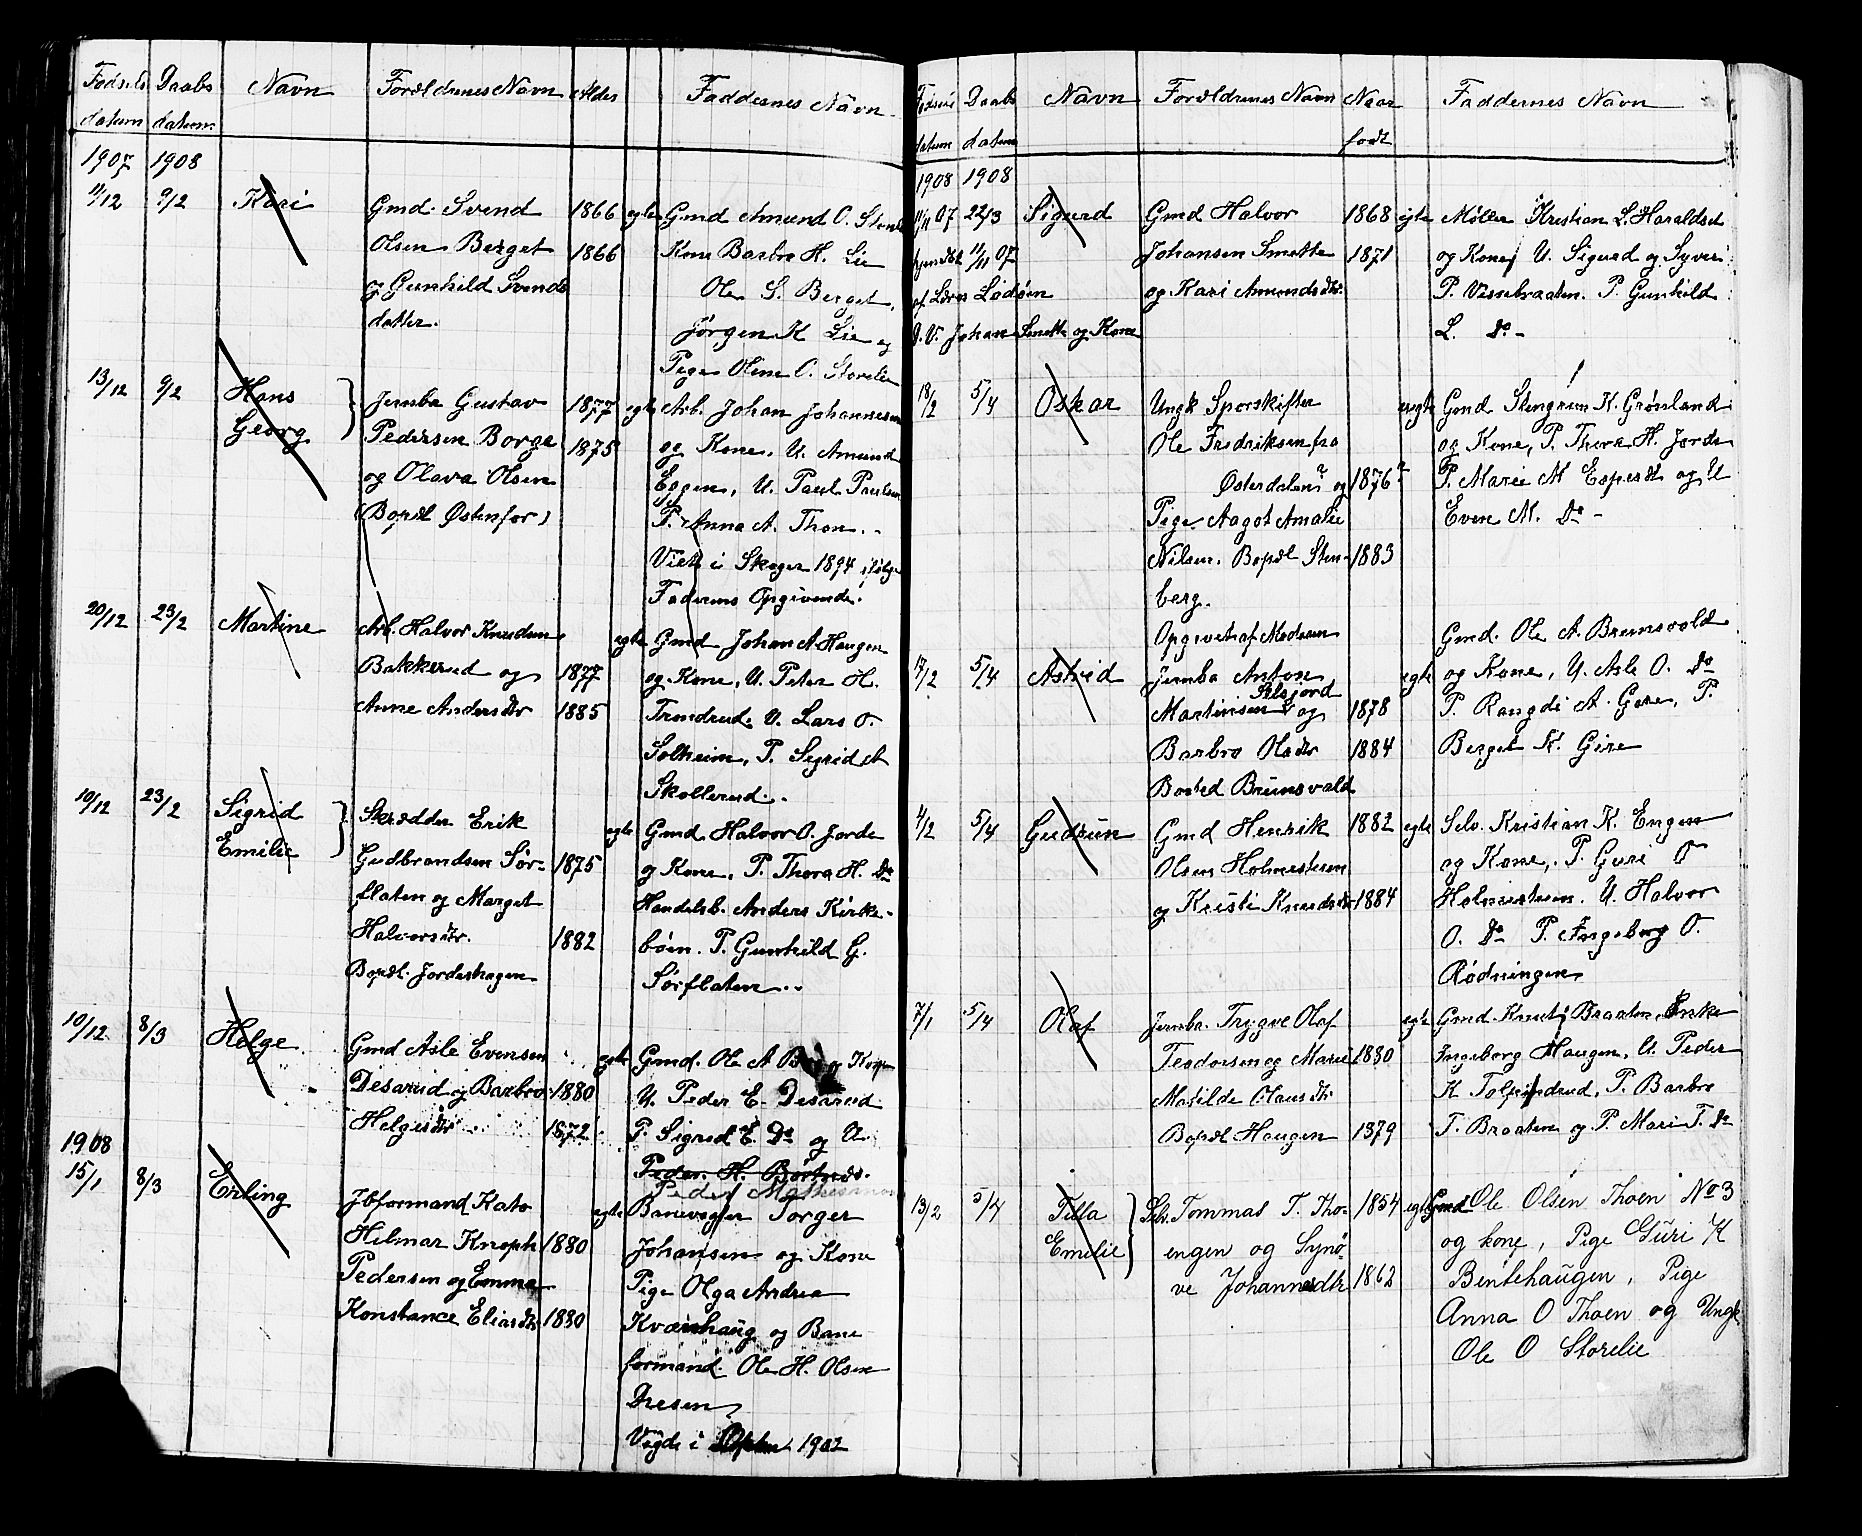 Fødsels Daabs Navn Foreldrenes Navn Alder Faddernes Navn
datum datum
1907 1908
11/12 9/2 Kari Gmd. Svend 1866 egte Gmd Amund O.
Olsen Berget 1866 Kone Barbro H. Lie
og Gunhild Svends Ole S. Berget,
datter. Jørgen K Lie og
Pige Oline O. Storelie
13/12 9/2 Hans Jernba Gustav 1877 egte Arb. Johan Johannesen
Georg Pedersen Borge 1875 og Kone, U. Amund
og Olava Olsen Engen, U. Paul Paulsen
(Bopæl Østenfor) P. Anna A. Thon.
Viet i Skoger 1894 ifølge
Faderens Opgivende.
20/12 23/2 Martine Arb. Halvor Knudsen egte Gmd Johan A. Haugen
Bakkerud og 1877 og Kone, U. Peter H.
Anne Andersdtr 1885 Trondrud. U. Lars O.
Solheim, P. Sigrid A
Skollerud.
10/12 23/2 Sigrid Skrædder Erik egte Gmd Halvor O. Jorde
Emilie Gudbrandsen Sør- 1875 og Kone, P. Thora H. Do
flaten og Marget Handelsb. Anders Kirke-
Halvorsdtr. 1882 bøen. P. Gunhild G.
Bopæl. Jordeshagen Sørflaten.
10/12 8/3 Helge Gmd Asle Evensen egte Gmd. Ole A og Kone
Desarud og Barbro 1880 U. Peder E. Desarud
Helgesdtr. 1872 P. Sigrid E. Do og U
1908 Peder. H. Børtnes.
Peder Mathiesmoen
15/1 8/3 Erling Jbformand Kato egte Banevogter Torger
Hilmar Knoph 1880 Johansen og Kone
Pedersen og Emma Pige Olga Andrea
Konstance Eliasdtr 1880 Kværnhaug og Bane
formand. Ole H. Olsen
Dresen
Vigde i 1902
Fødsels Daabs Navn Foreldrenes Navn Naar Faddernes Navn
datum datum født
1908 1908
11/11 07 22/3 Sigurd Gmd Halvor 1868 egte Møller Kristian L. Haraldset
hjemdbt 11/11 07 Johansen Smette 1871 og Kone, U. Sigurd og Syver
af Lars Lødøen og Kari Amundsdtr. P. Vissebraaten. P. Gunhild
D. V. Johan Smette og Kone L. Do
18/2 5/4 Oskar Ungk Sporskifter uegte Gmd Stengrim K. Grønland
Ole Fredriksen fra og Kone, P. Thora H. Jorde
Østerdalen? og 1876? P. Marie M Espesdt og U
Pige Aagot Amalie Even M. Do
Nilsen. Bopæl Sten- 1883
berg.
Opgivet af Moderen Gmd. Ole A. Brunsvold
17/2 5/4 Astrid Jernba Anton egte og Kone, U. Asle O. Do
Selsjord
Martinsen og 1878 P. Rangdi A. Gere, P.
Barbro Olsdtr 1884 Berget K. Gire
Bosted Brunsvold
4/2 5/4 Gudrun Gmd Henrik 1882 egte Selv. Kristian K. Engen
Olsen Holmesteen og Kone, P. Guri O
og Kristi Knudsdtr 1884 Holmesteen. U. Halvor
O. Do P. Ingeborg O.
Rødningen
7/1 5/4 Olaf Jernba. Trygve Olaf egte Gmd. Knut Braaten, Enke
Teodorsen og Marie 1880 Ingeborg Haugen, U. Peder
Matilde Olausdtr K Tolfindrud, P. Barbro
Bopæl Haugen 1879 T. Braaten og P. Mari T. Do
13/2 5/4 Tilla Selv. Tommas T. Tho- 1854 egte Gmd Ole Olsen Thoen No 3
Emelie engen og Synø- og kone, Pige Guri K
ve Johannesdtr. 1862 Bentehaugen, Pige
Anna O Thoen og Ungk
Ole O Storelie